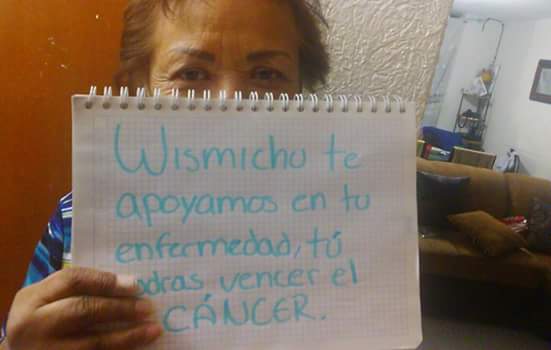 Wismichu te
apoyamos en tu
enfermedad, tú
odras vencer el
CÁNCER.